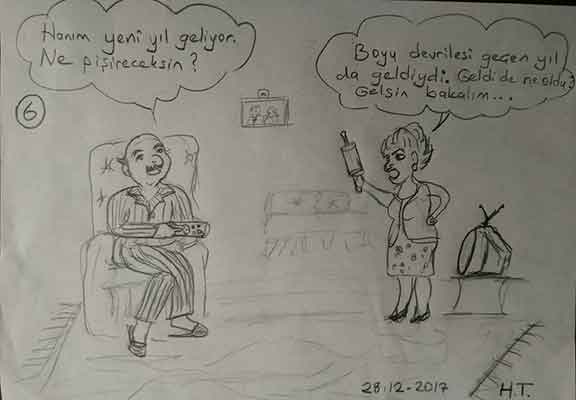 Hanım yeni yıl geliyor.
Ne pişireceksin?
Boyu devrilesi geçen yıl
da geldiydi. Geldi de ne oldu?
Gelsin bakalım...
6
28.12-2017
H.T.